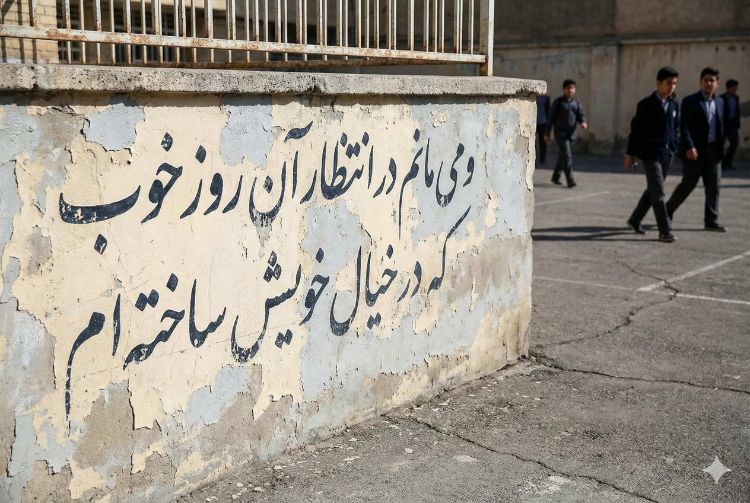 و می مانم در انتظار آن روز خوب
که در خیال خویش ساخته ام